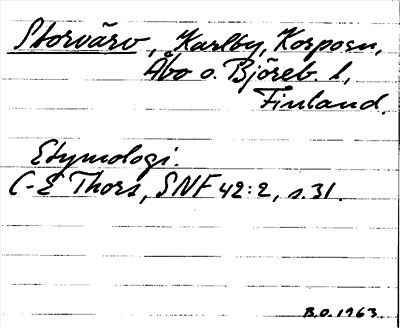 Storvärv, Karlby, Korpoen,
Åbo o. Björneb. l,
Finland.
Etymologi.
C-E Thors, SNF 42:2, s.31.
B.O. 1963.